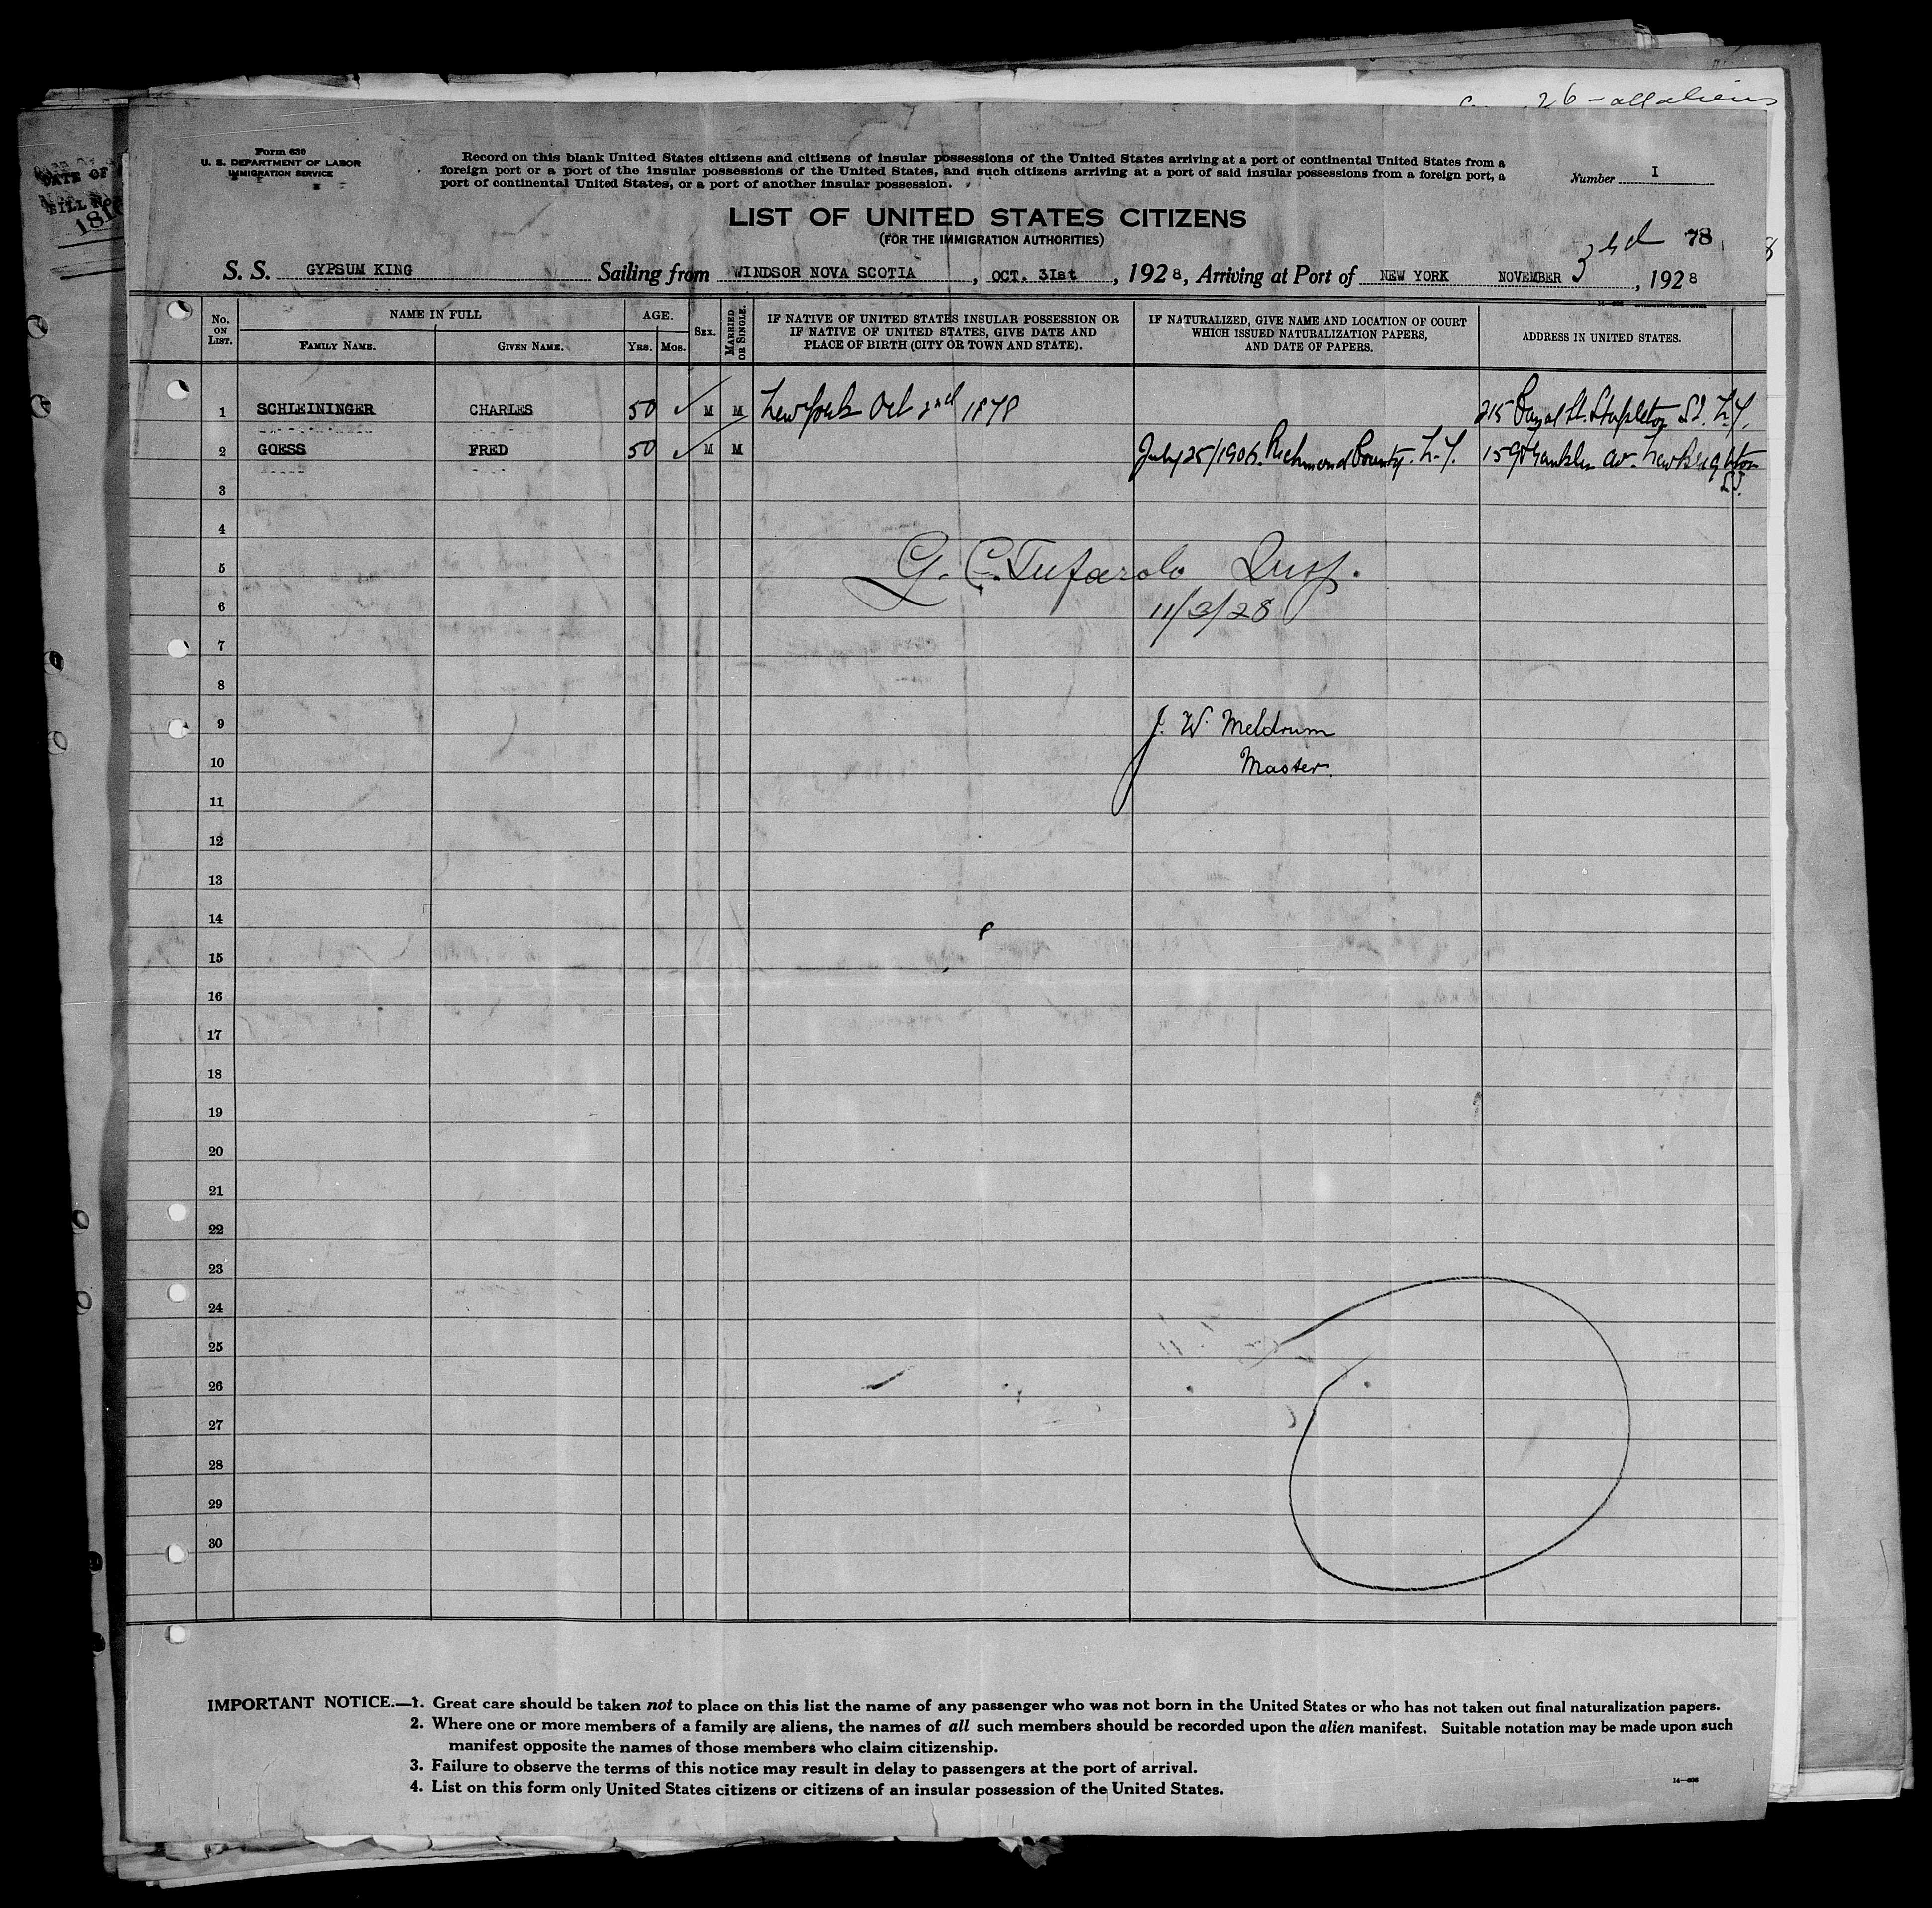 26 - all aliens
Form 630
U. S. DEPARTMENT OF LABOR
IMMIGRATION SERVICE
Record on this blank United States citizens and citizens of insular possessions of the United States arriving at a port of continental United States from a
foreign port or a port of the insular possessions of the United States, and such citizens arriving at a port of said insular possessions from a foreign port, a
port of continental United States, or a port of another insular possession.
Number I
LIST OF UNITED STATES CITIZENS
(FOR THE IMMIGRATION AUTHORITIES)
78
S. S. GYPSUM KING Sailing from WINDSOR NOVA SCOTIA, OCT. 3Ist, 1928, Arriving at Port of NEW YORK NOVEMBER 3rd, 1928
No. ON LIST. NAME IN FULL FAMILY NAME. GIVEN NAME. AGE. YRS. MOS. SEX. MARRIED OR SINGLE. IF NATIVE OF UNITED STATES INSULAR POSSESSION OR IF NATIVE OF UNITED STATES, GIVE DATE AND PLACE OF BIRTH (CITY OR TOWN AND STATE). IF NATURALIZED, GIVE NAME AND LOCATION OF COURT WHICH ISSUED NATURALIZATION PAPERS, AND DATE OF PAPERS. ADDRESS IN UNITED STATES.
1 SCHLEININGER CHARLES 50 M M New York Oct 2nd 1878 215 St. Stapleton S.I. N.Y.
2 GOESS FRED 50 M M July 25/1906. Richmond County. N.Y. 159 Franklin Av. New Brighton S.I.
3
4
5 G. C. Tufarolo Insp.
6 11/3/28
7
8
9 J. W. Meldrum
10 Master.
11
12
13
14
15
16
17
18
19
20
21
22
23
24
25
26
27
28
29
30
IMPORTANT NOTICE.—1. Great care should be taken not to place on this list the name of any passenger who was not born in the United States or who has not taken out final naturalization papers.
2. Where one or more members of a family are aliens, the names of all such members should be recorded upon the alien manifest. Suitable notation may be made upon such
manifest opposite the names of those members who claim citizenship.
3. Failure to observe the terms of this notice may result in delay to passengers at the port of arrival.
4. List on this form only United States citizens or citizens of an insular possession of the United States.